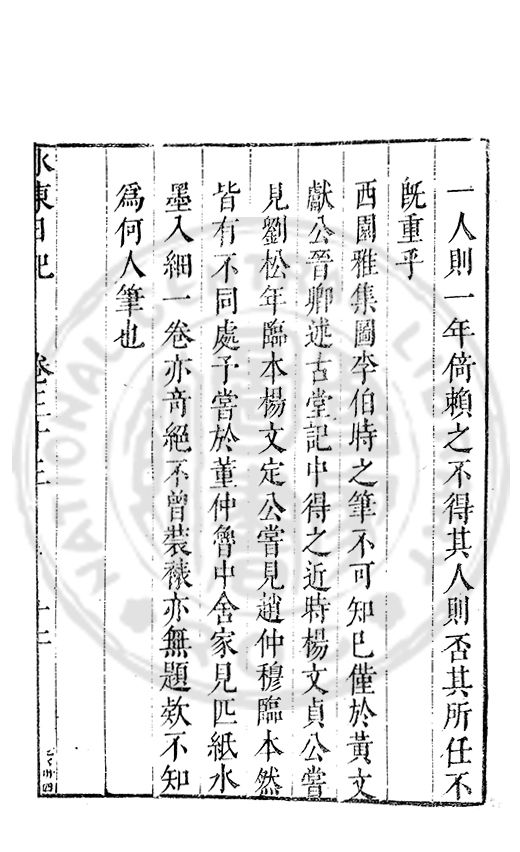 一人則一年倚賴之不得其人則否其所任不
旣重乎
西園雅集圖李伯時之筆不可知巳僅於黃文
獻公晉卿述古堂記中得之近時楊文貞公嘗
見劉松年臨本楊文定公嘗見趙仲穆臨本然
皆有不同處予嘗於董仲魯中舍家見匹紙水
墨入細一卷亦奇絕不曾裝褙亦無題欵不知
爲何人筆也
水東日記 卷三十三
NATIONAL CENTRAL LI